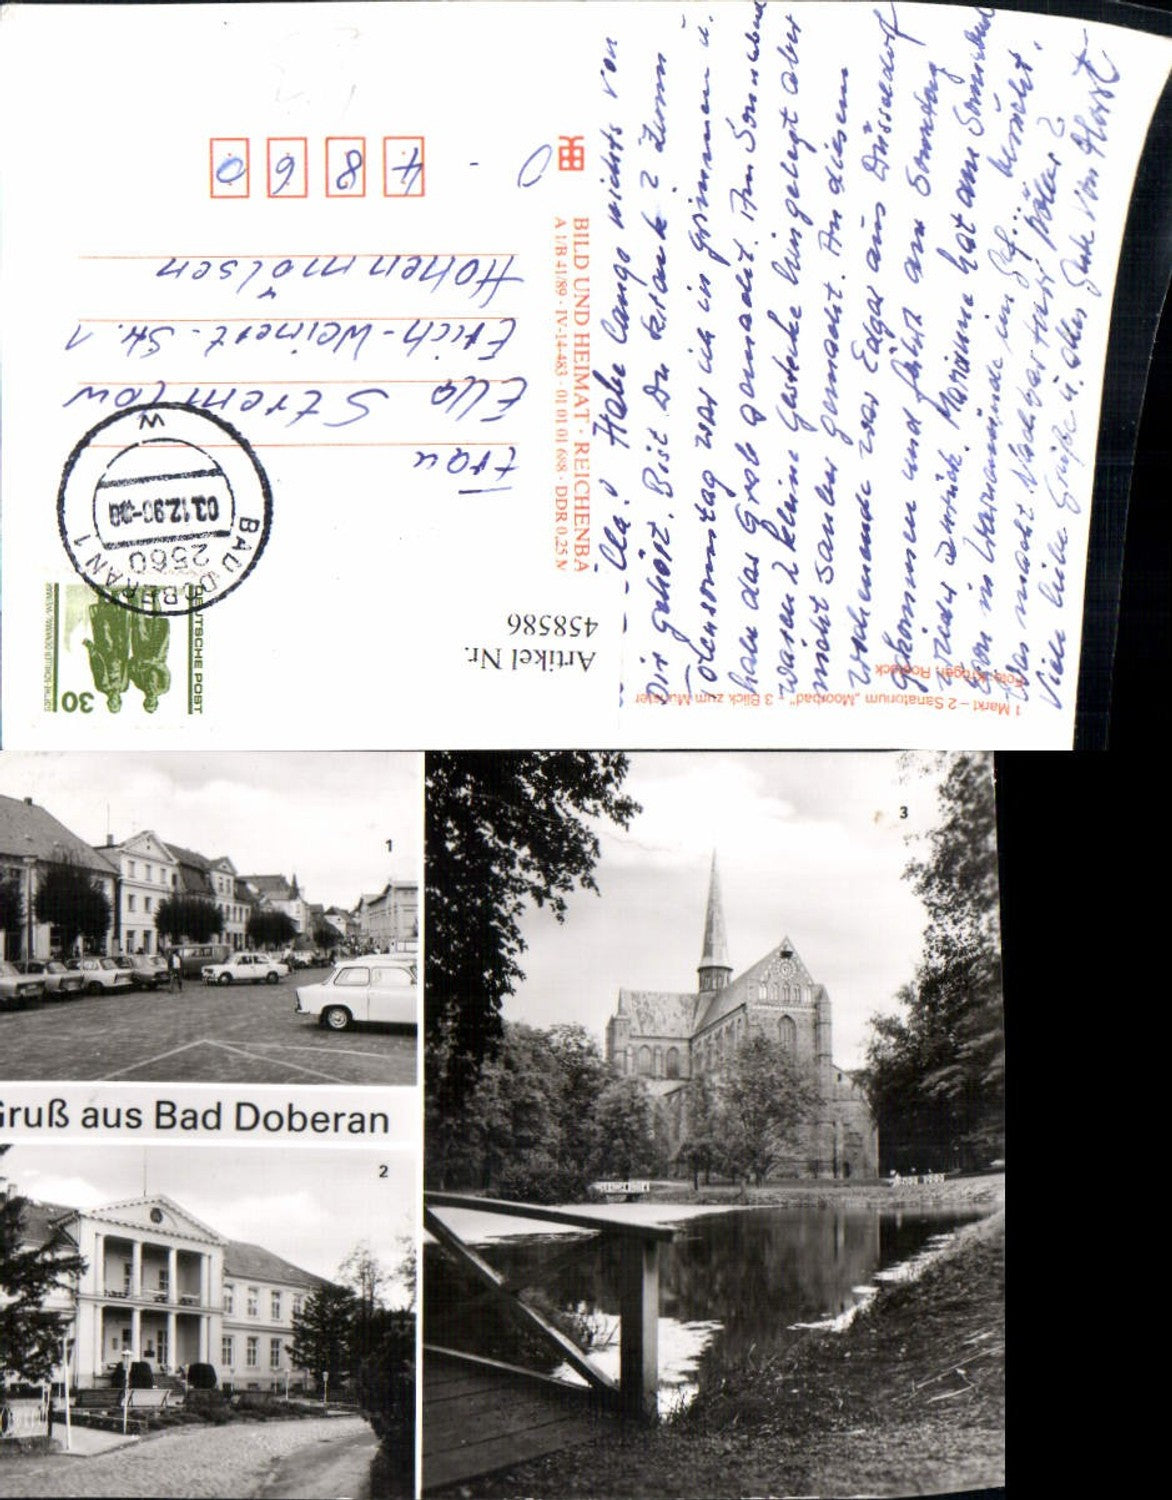 Ella! Habe lange nichts von
Dir gehört. Bist Du krank? Zum
Totensonntag war ich in Grimmen u.
habe das Grab gemacht. Am Sonnabend
waren 2 kleine Gestecke hingelegt aber
nicht sauber gemacht. An diesem
Wochenende war Edgar aus Düsseldorf
gekommen und fährt am Sonntag
wieder zurück. Marianne hat am Sonnabend
in Warnemünde im besucht.
Was macht Nachbar
Viele liebe Grüße u. alles Gute von Horst
1 Markt – 2 Sanatorium „Moorbad" – 3 Blick zum Münster
Foto: Krögen, Rostock
Artikel Nr.
458586
BILD UND HEIMAT · REICHENBA
A 1/B 41/89 · IV-14-483 · 01 01 01 688 · DDR 0,25 M
DEUTSCHE POST
30
BAD DOBERAN 1
2560
03.12.90
w
Frau
Ella Stremlow
Erich-Weinert-Str. 1
Hohenmölsen
O - 4 8 6 0
1
Gruß aus Bad Doberan
2
3